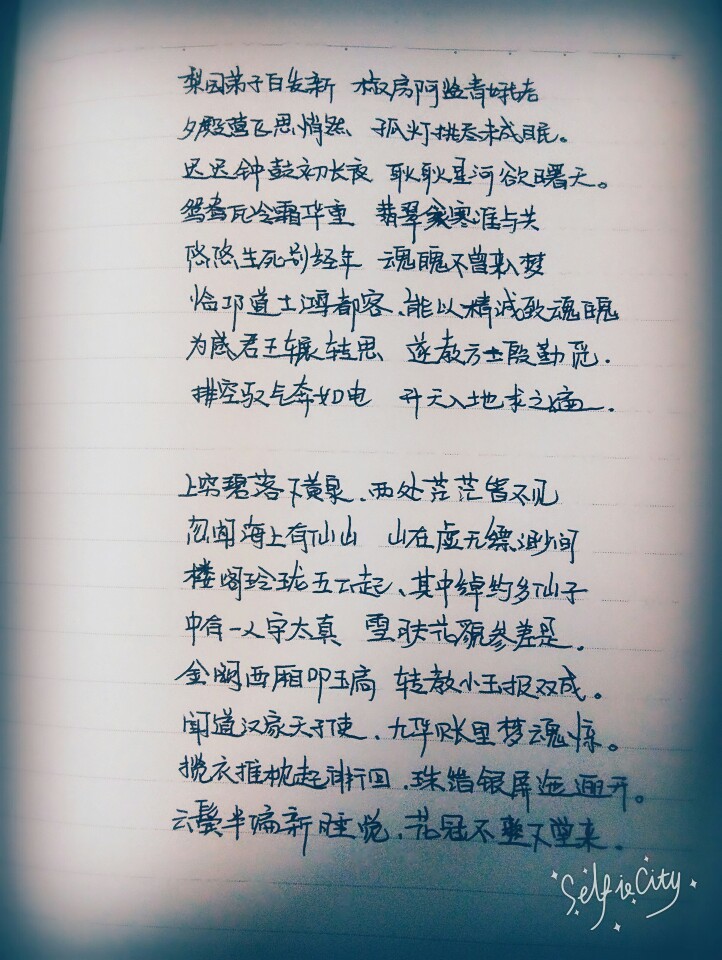 梨园弟子白发新 椒房阿监青娥老
夕殿萤飞思悄然、孤灯挑尽未成眠。
迟迟钟鼓初长夜 耿耿星河欲曙天。
鸳鸯瓦冷霜华重 翡翠衾寒谁与共
悠悠生死别经年 魂魄不曾来入梦
临邛道士鸿都客、能以精诚致魂魄
为感君王辗转思 遂教方士殷勤觅.
排空驭气奔如电 升天入地求之遍.
上穷碧落下黄泉、两处茫茫皆不见
忽闻海上有仙山 山在虚无缥渺间
楼阁玲珑五云起、其中绰约多仙子
中有一人字太真 雪肤花貌参差是.
金阙西厢叩玉扃 转教小玉报双成。
闻道汉家天子使、九华帐里梦魂惊。
揽衣推枕起徘徊.珠箔银屏迤逦开。
云鬓半偏新睡觉、花冠不整下堂来.
SelfieCity